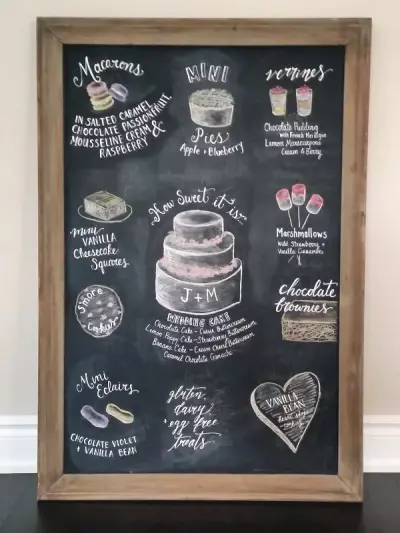 Macarons
IN SALTED CARAMEL,
CHOCOLATE PASSIONFRUIT,
MOUSSELINE CREAM &
RASPBERRY
MINI
Pies
Apple + Blueberry
verrines
Chocolate Pudding
with French Meringue
Lemon Mascarpone
Cream & Berry
mini
VANILLA
Cheesecake
Squares
How Sweet it is...
J + M
WEDDING CAKE
Chocolate Cake -
Buttercream
Lemon Poppy Cake - Strawberry Buttercream
Banana Cake - Cream Cheese Buttercream
Caramel Chocolate Ganache
Marshmallows
Wild Strawberry +
Vanilla
S'more
Cookies
chocolate
brownies
Mini
Eclairs
CHOCOLATE VIOLET
+ VANILLA BEAN
gluten,
dairy
+ egg free
treats
VANILLA
BEAN